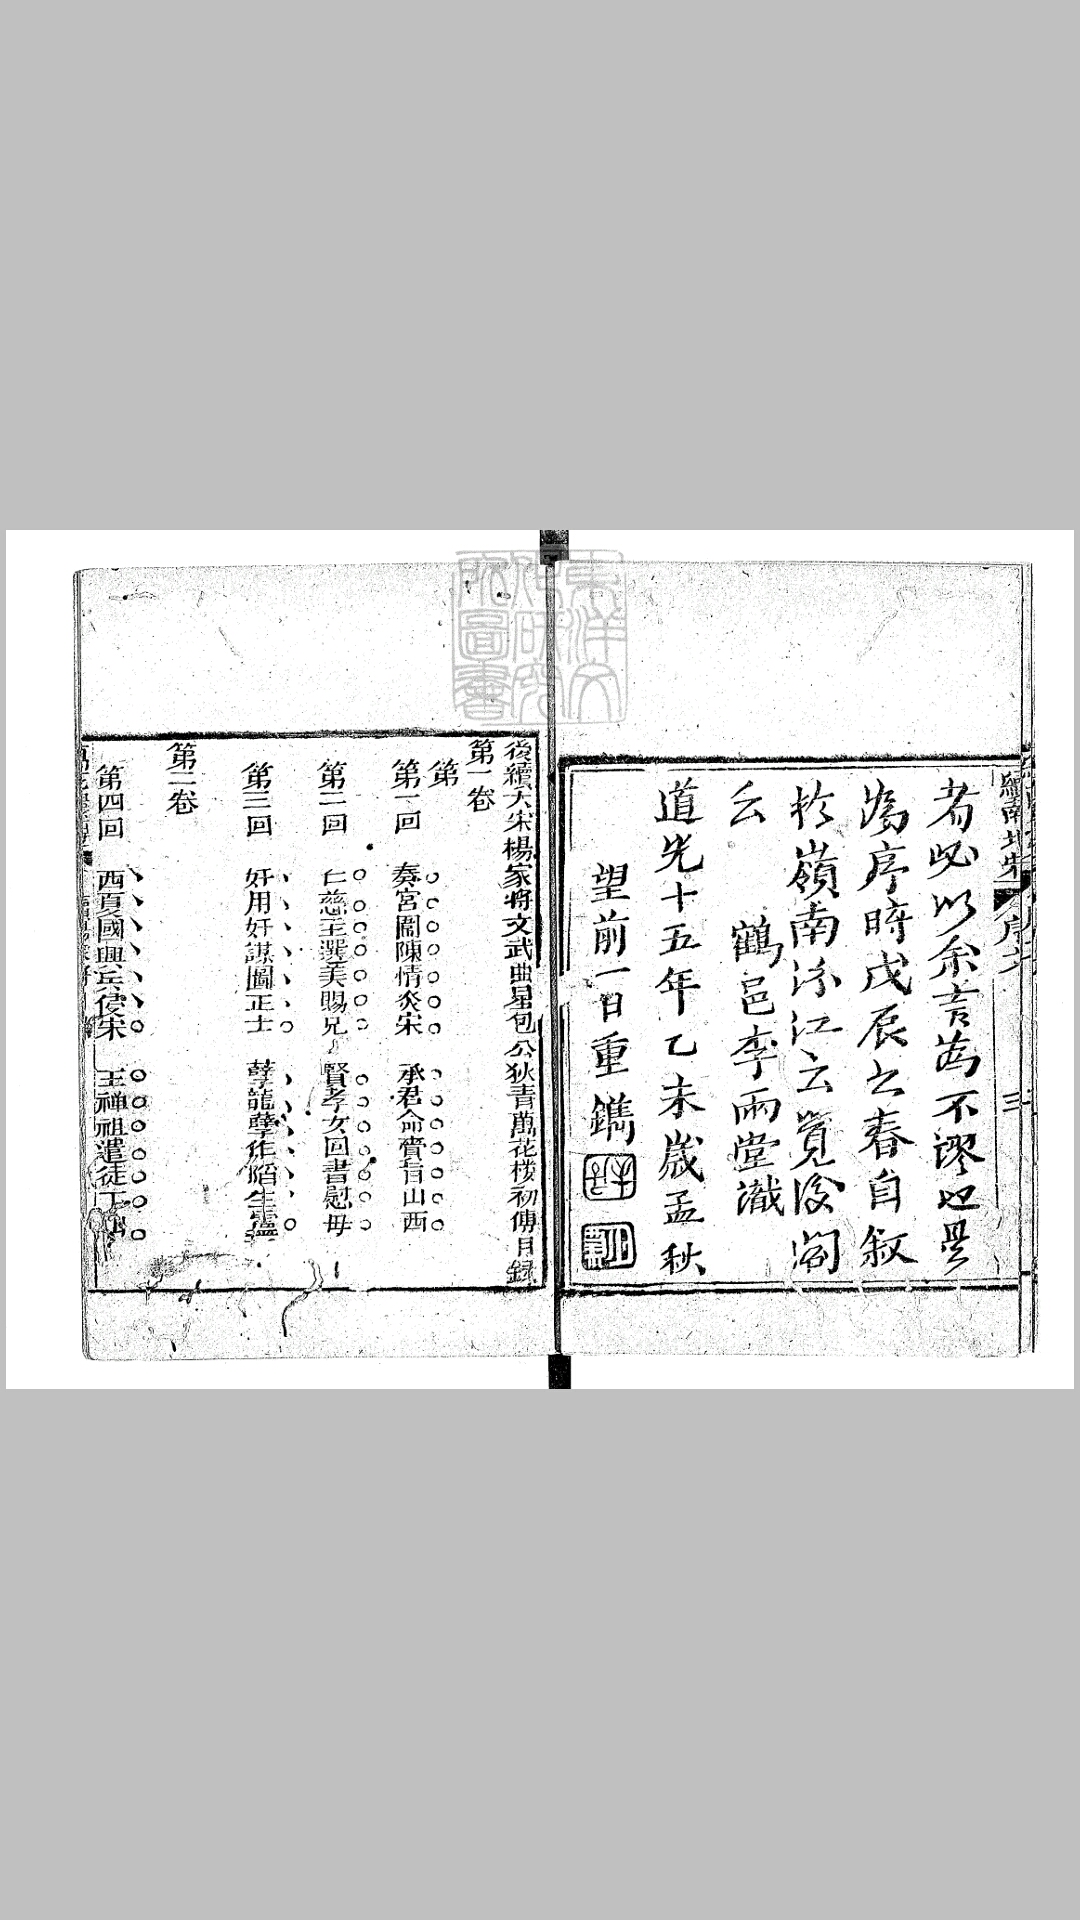 者必以余言為不謬也是
為序時戊辰之春自叙
於嶺南汾江之覽後閣
云
鶴邑李雨堂識
道光十五年乙未歲孟秋
望前一日重鐫
後續大宋楊家將文武曲星包公狄青萬花楼初傳目録
第一卷
第
第一回 奏宮闈陳情炎宋 承君命賫旨山西
第二回 仁慈主選美賜兄 賢孝女回書慰母
第三回 奸用奸謀圖正士 孽龍孽作陷生靈
第二卷
第四回 西夏國興兵侵宋 王禅祖遣徒下